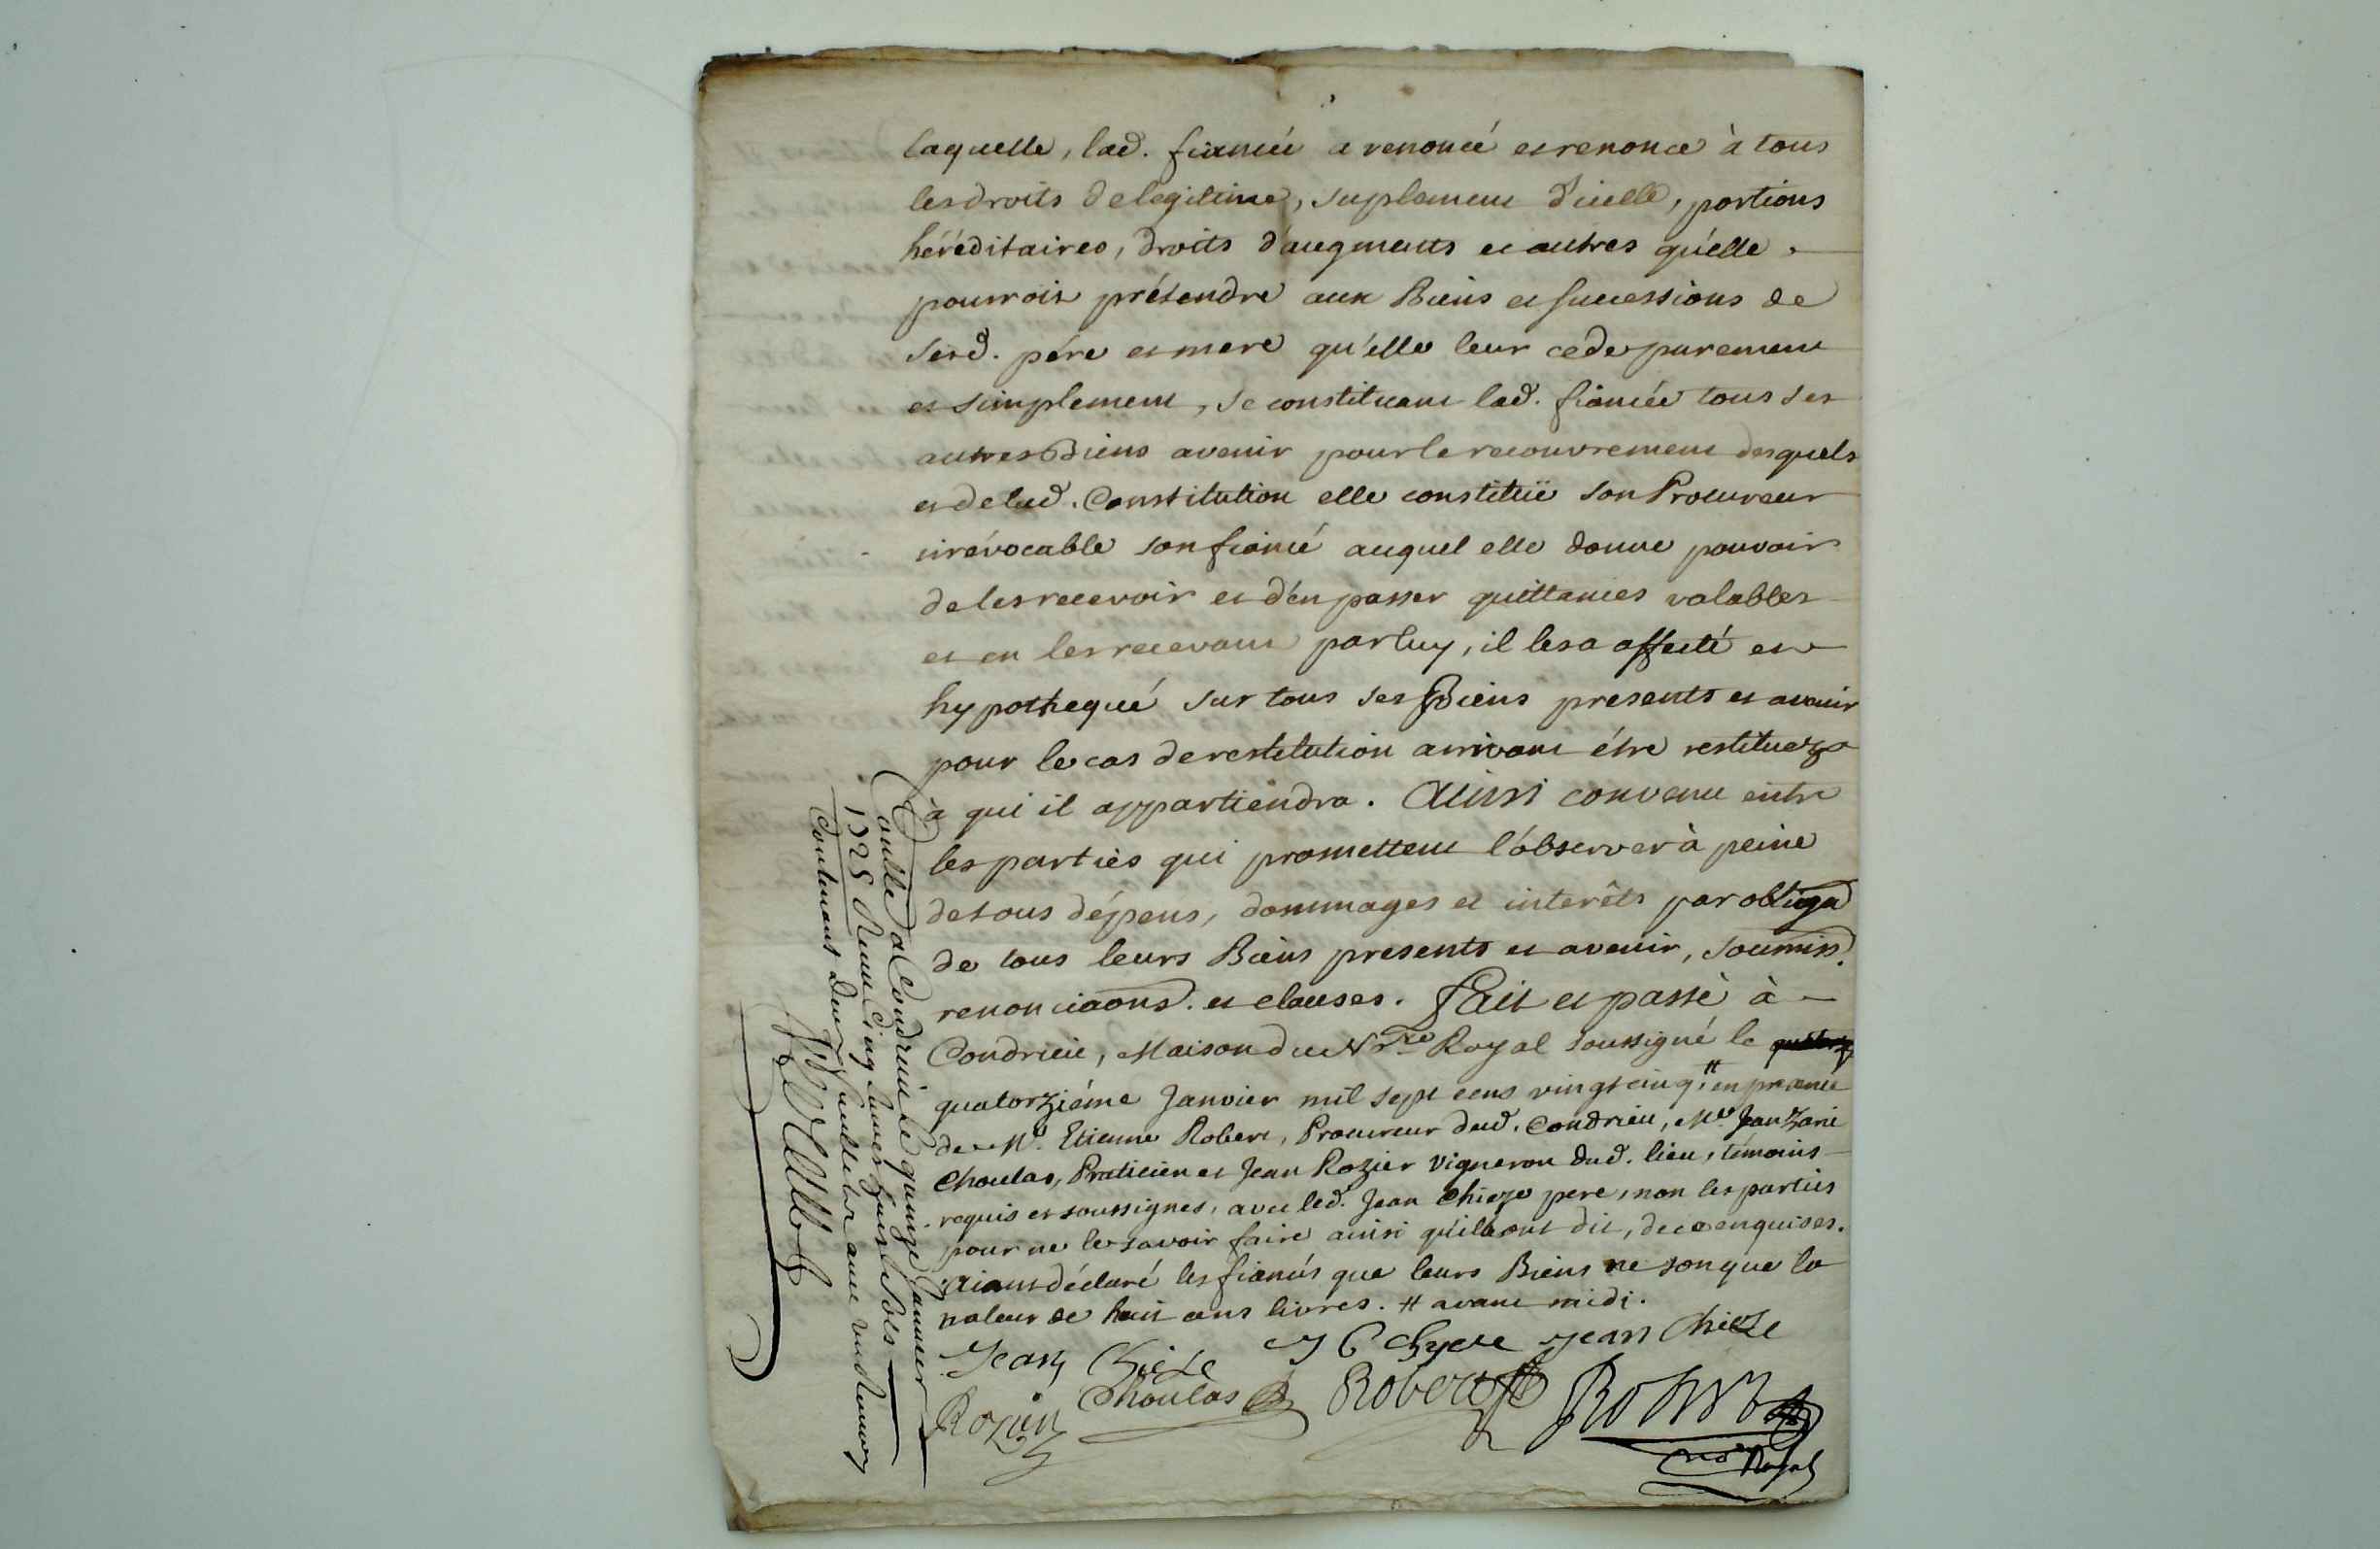 laquelle, lad. fiancée a renoncé et renonce à tous
les droits de legitime, suplement d'icelle, portions
héréditaires, droits d'augments et autres qu'elle
pourroit prétendre aux Biens et successions de
sesd. pére et mere qu'elle leur cede purement
et simplement, se constituant lad. fiancée tous ses
autres Biens avenir pour le recouvrement desquels
et de lad. Constitution elle constituë son Procureur
irévocable son fiancé auquel elle donne pouvoir
de les recevoir et d'en passer quittances valables
et en les recevant par luy, il les a affecté et
hypothequé sur tous ses Biens presents et avenir
pour le cas de restitution arrivant étre restituez
à qui il appartiendra. Ainsi convenu entre
les parties qui promettent l'observer à peine
de tous dépens, dommages et interêts par obligaõ
de tous leurs Biens presents et avenir, soumiss.
renonciaons. et clauses. Fait et passé à
Condrieu, Maison du Nre Royal soussigné le
quatorziéme Janvier mil sept cens vingt cinq, # en presence
de Me. Etienne Robert, Procureur dud. Condrieu, Me. Jean
Choulas, Praticien et Jean Rozier Vigneron dud. lieu, témoins
requis et soussignes, avec led. Jean Chieze pere, non les parties
pour ne le savoir faire ainsi qu'ils ont dit, de ce enquises.
Aiant déclaré les fiancés que leurs Biens ne son que la
valeur de huit cens livres. # avant midi.
Jean Chieze J C Chyeze Jean Chieze
Rozier Choulas Robert Robert
nre Royal
Conllé a Condrieu le quinze Janvier
1725 Receu cinq livres sols
Contenant deux